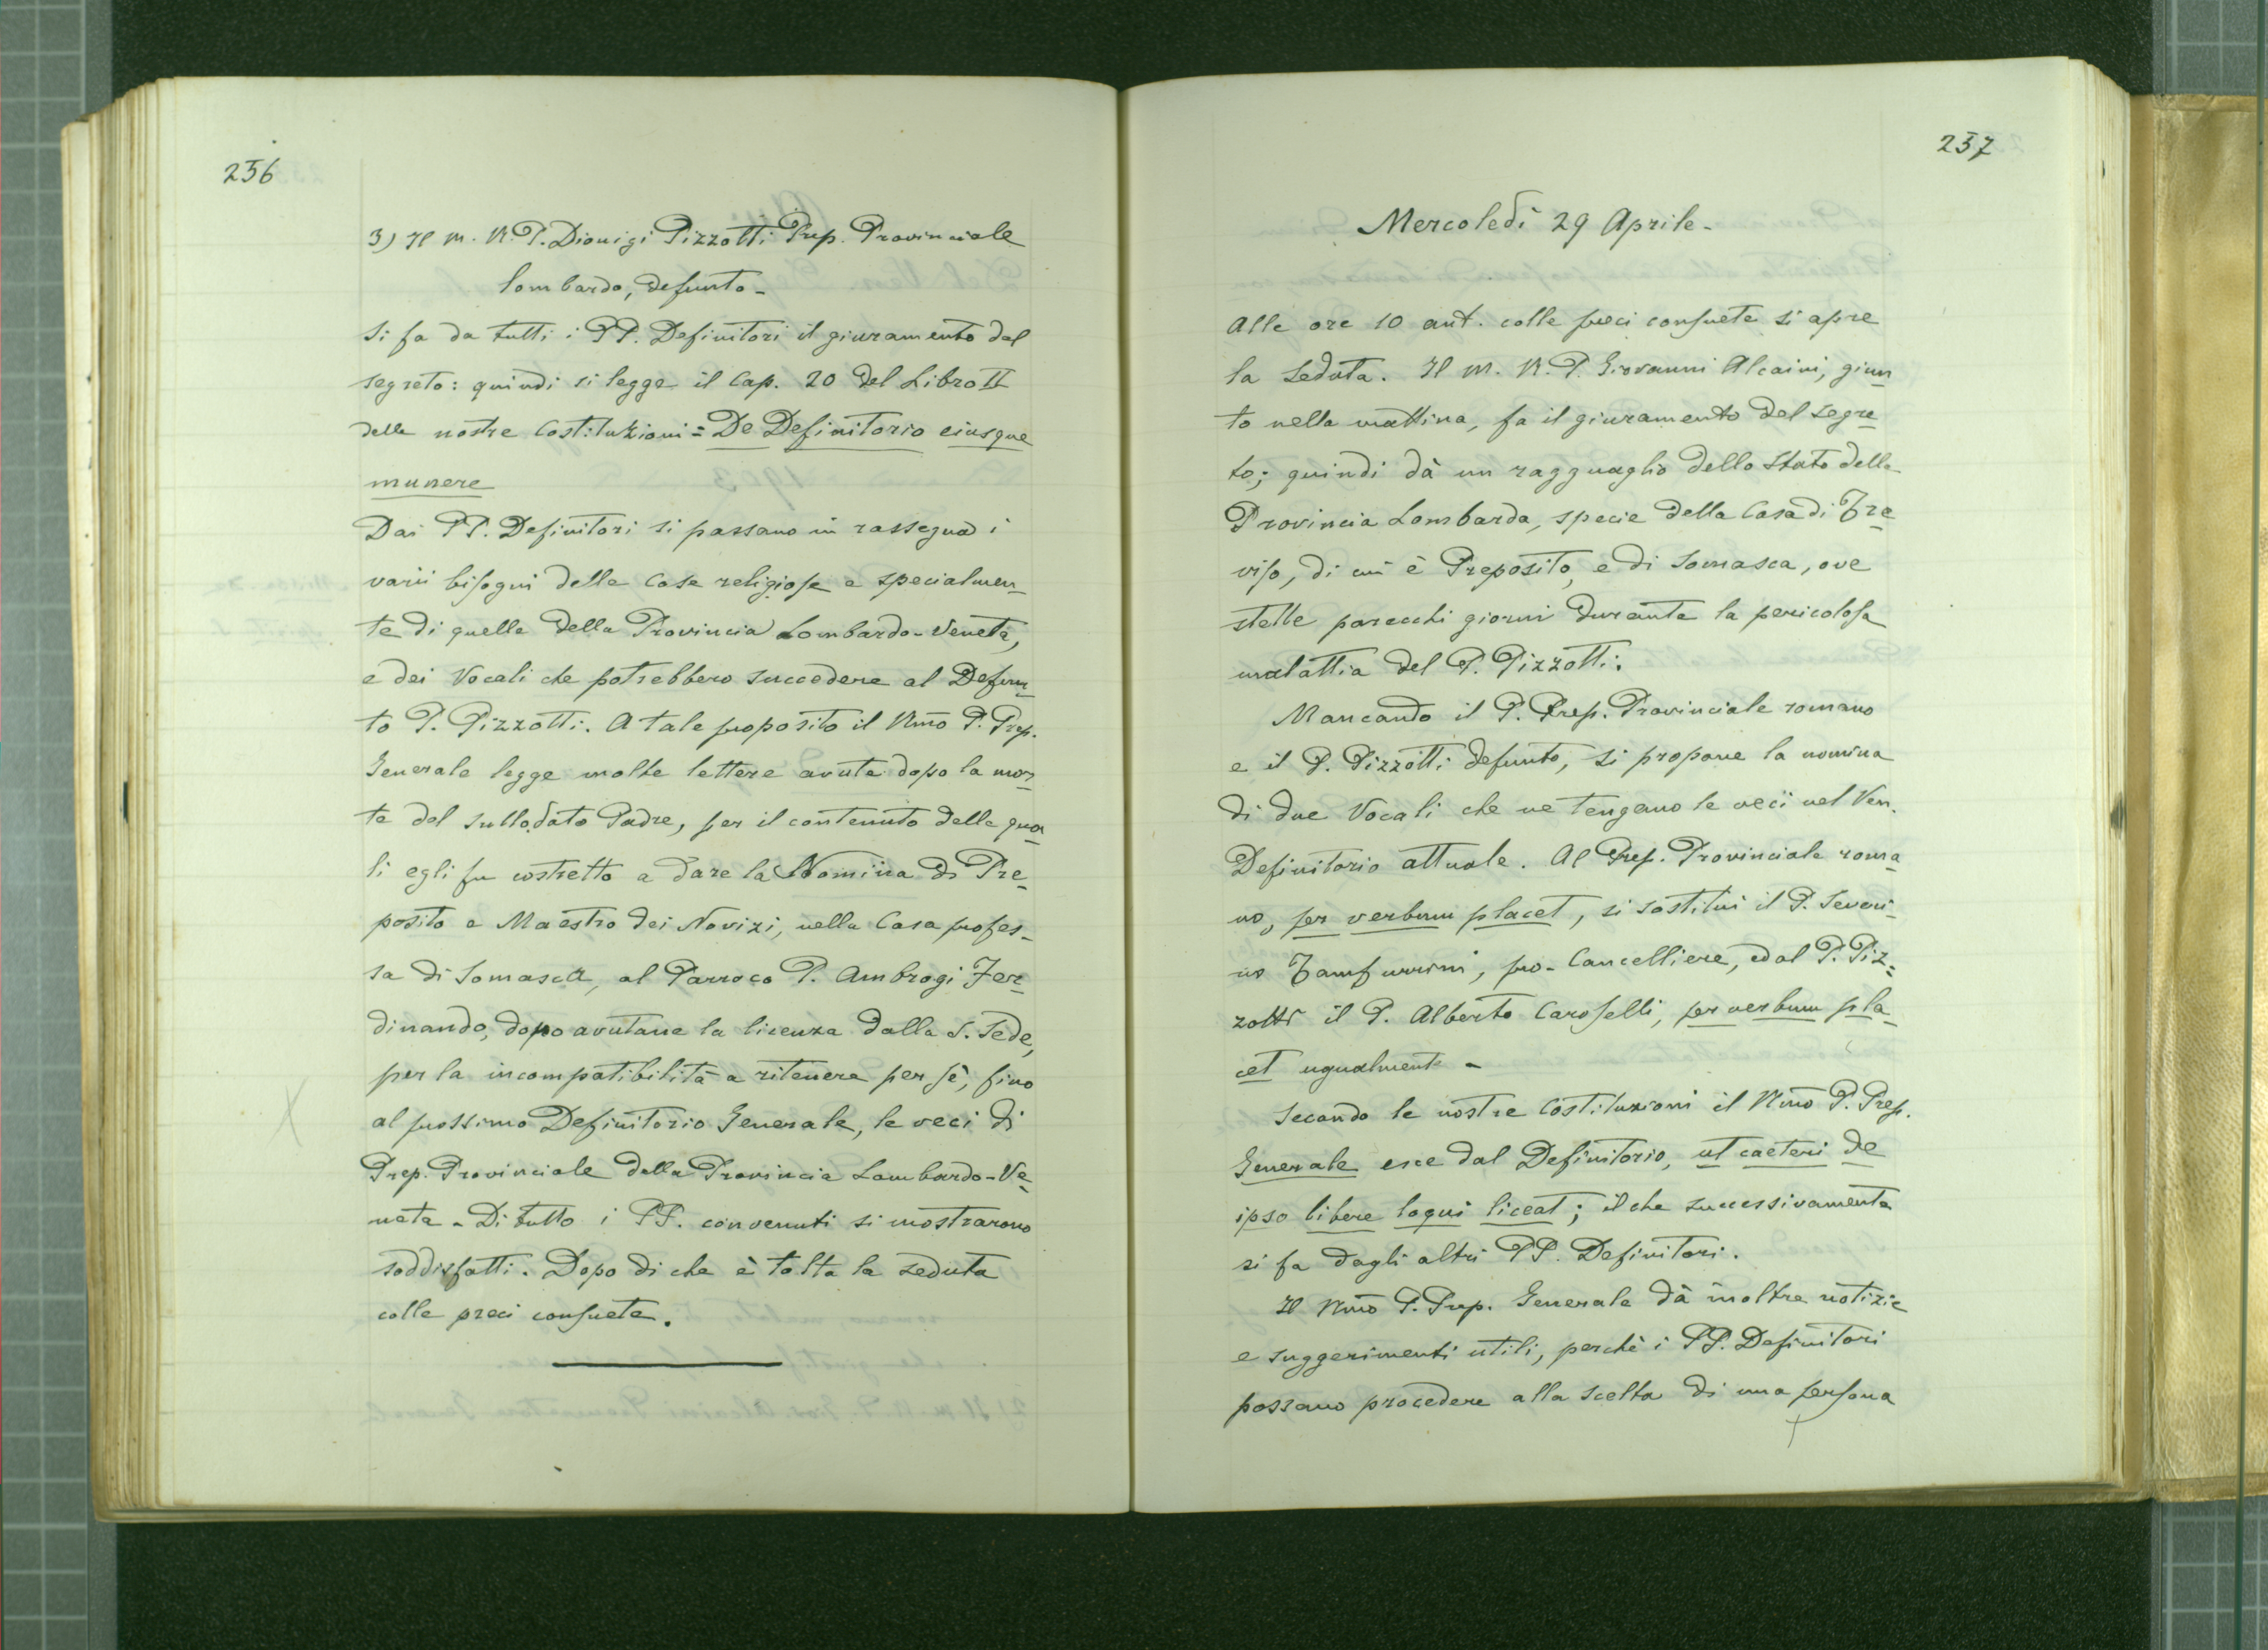 256
3) Il M. R. P. Dionigi Pizzotti Prep. Provinciale
lombardo, defunto -
Si fa da tutti i PP. Definitori il giuramento del
segreto: quindi si legge il Cap. 20 del Libro II
delle nostre Costituzioni = De Definitorio eiusque
munere
Dai PP. Definitori si passano in rassegna i
varii bisogni delle Case religiose e specialmen-
te di quelle della Provincia Lombardo-Veneta,
e dei Vocali che potrebbero succedere al Defun-
to P. Pizzotti. A tale proposito il Rmo P. Prep.
Generale legge molte lettere avute dopo la mor-
te del sullodato Padre, per il contenuto delle qua-
li egli fu costretto a dare la Nomina di Pre-
posito e Maestro dei Novizi, nella Casa profes-
sa di Somasca, al Parroco P. Ambrogi Fer-
dinando, dopo avutane la licenza dalla S. Sede,
per la incompatibilità a ritenere per sè, fino
al prossimo Definitorio Generale, le veci di
Prep. Provinciale della Provincia Lombardo-Ve-
neta - Di tutto i PP. convenuti si mostrarono
soddisfatti. Dopo di che è tolta la seduta
colle preci consuete.
237
Mercoledì 29 Aprile -
Alle ore 10 ant. colle preci consuete si apre
la seduta. Il M. R. P. Giovanni Alcaini, giun-
to nella mattina, fa il giuramento del segre-
to; quindi dà un ragguaglio dello Stato della
Provincia Lombarda, specie della Casa di Tre-
viso, di cui è Preposito, e di Somasca, ove
stette parecchi giorni durante la pericolosa
malattia del P. Pizzotti.
Mancando il P. Prep. Provinciale romano
e il P. Pizzotti defunto, si propone la nomina
di due Vocali che ne tengano le veci nel Ven.
Definitorio attuale. Al Prep. Provinciale roma-
no, per verbum placet, si sostituì il P. Severi-
no Tamburrini, pro-Cancelliere, e al P. Piz-
zotti il P. Alberto Caroselli, per verbum pla-
cet ugualmente -
Secondo le nostre Costituzioni il Rmo P. Prep.
Generale esce dal Definitorio, ut caeteri de
ipso libere loqui liceat; il che successivamente
si fa dagli altri PP. Definitori.
Il Rmo P. Prep. Generale dà inoltre notizie
e suggerimenti utili, perchè i PP. Definitori
possano procedere alla scelta di una persona